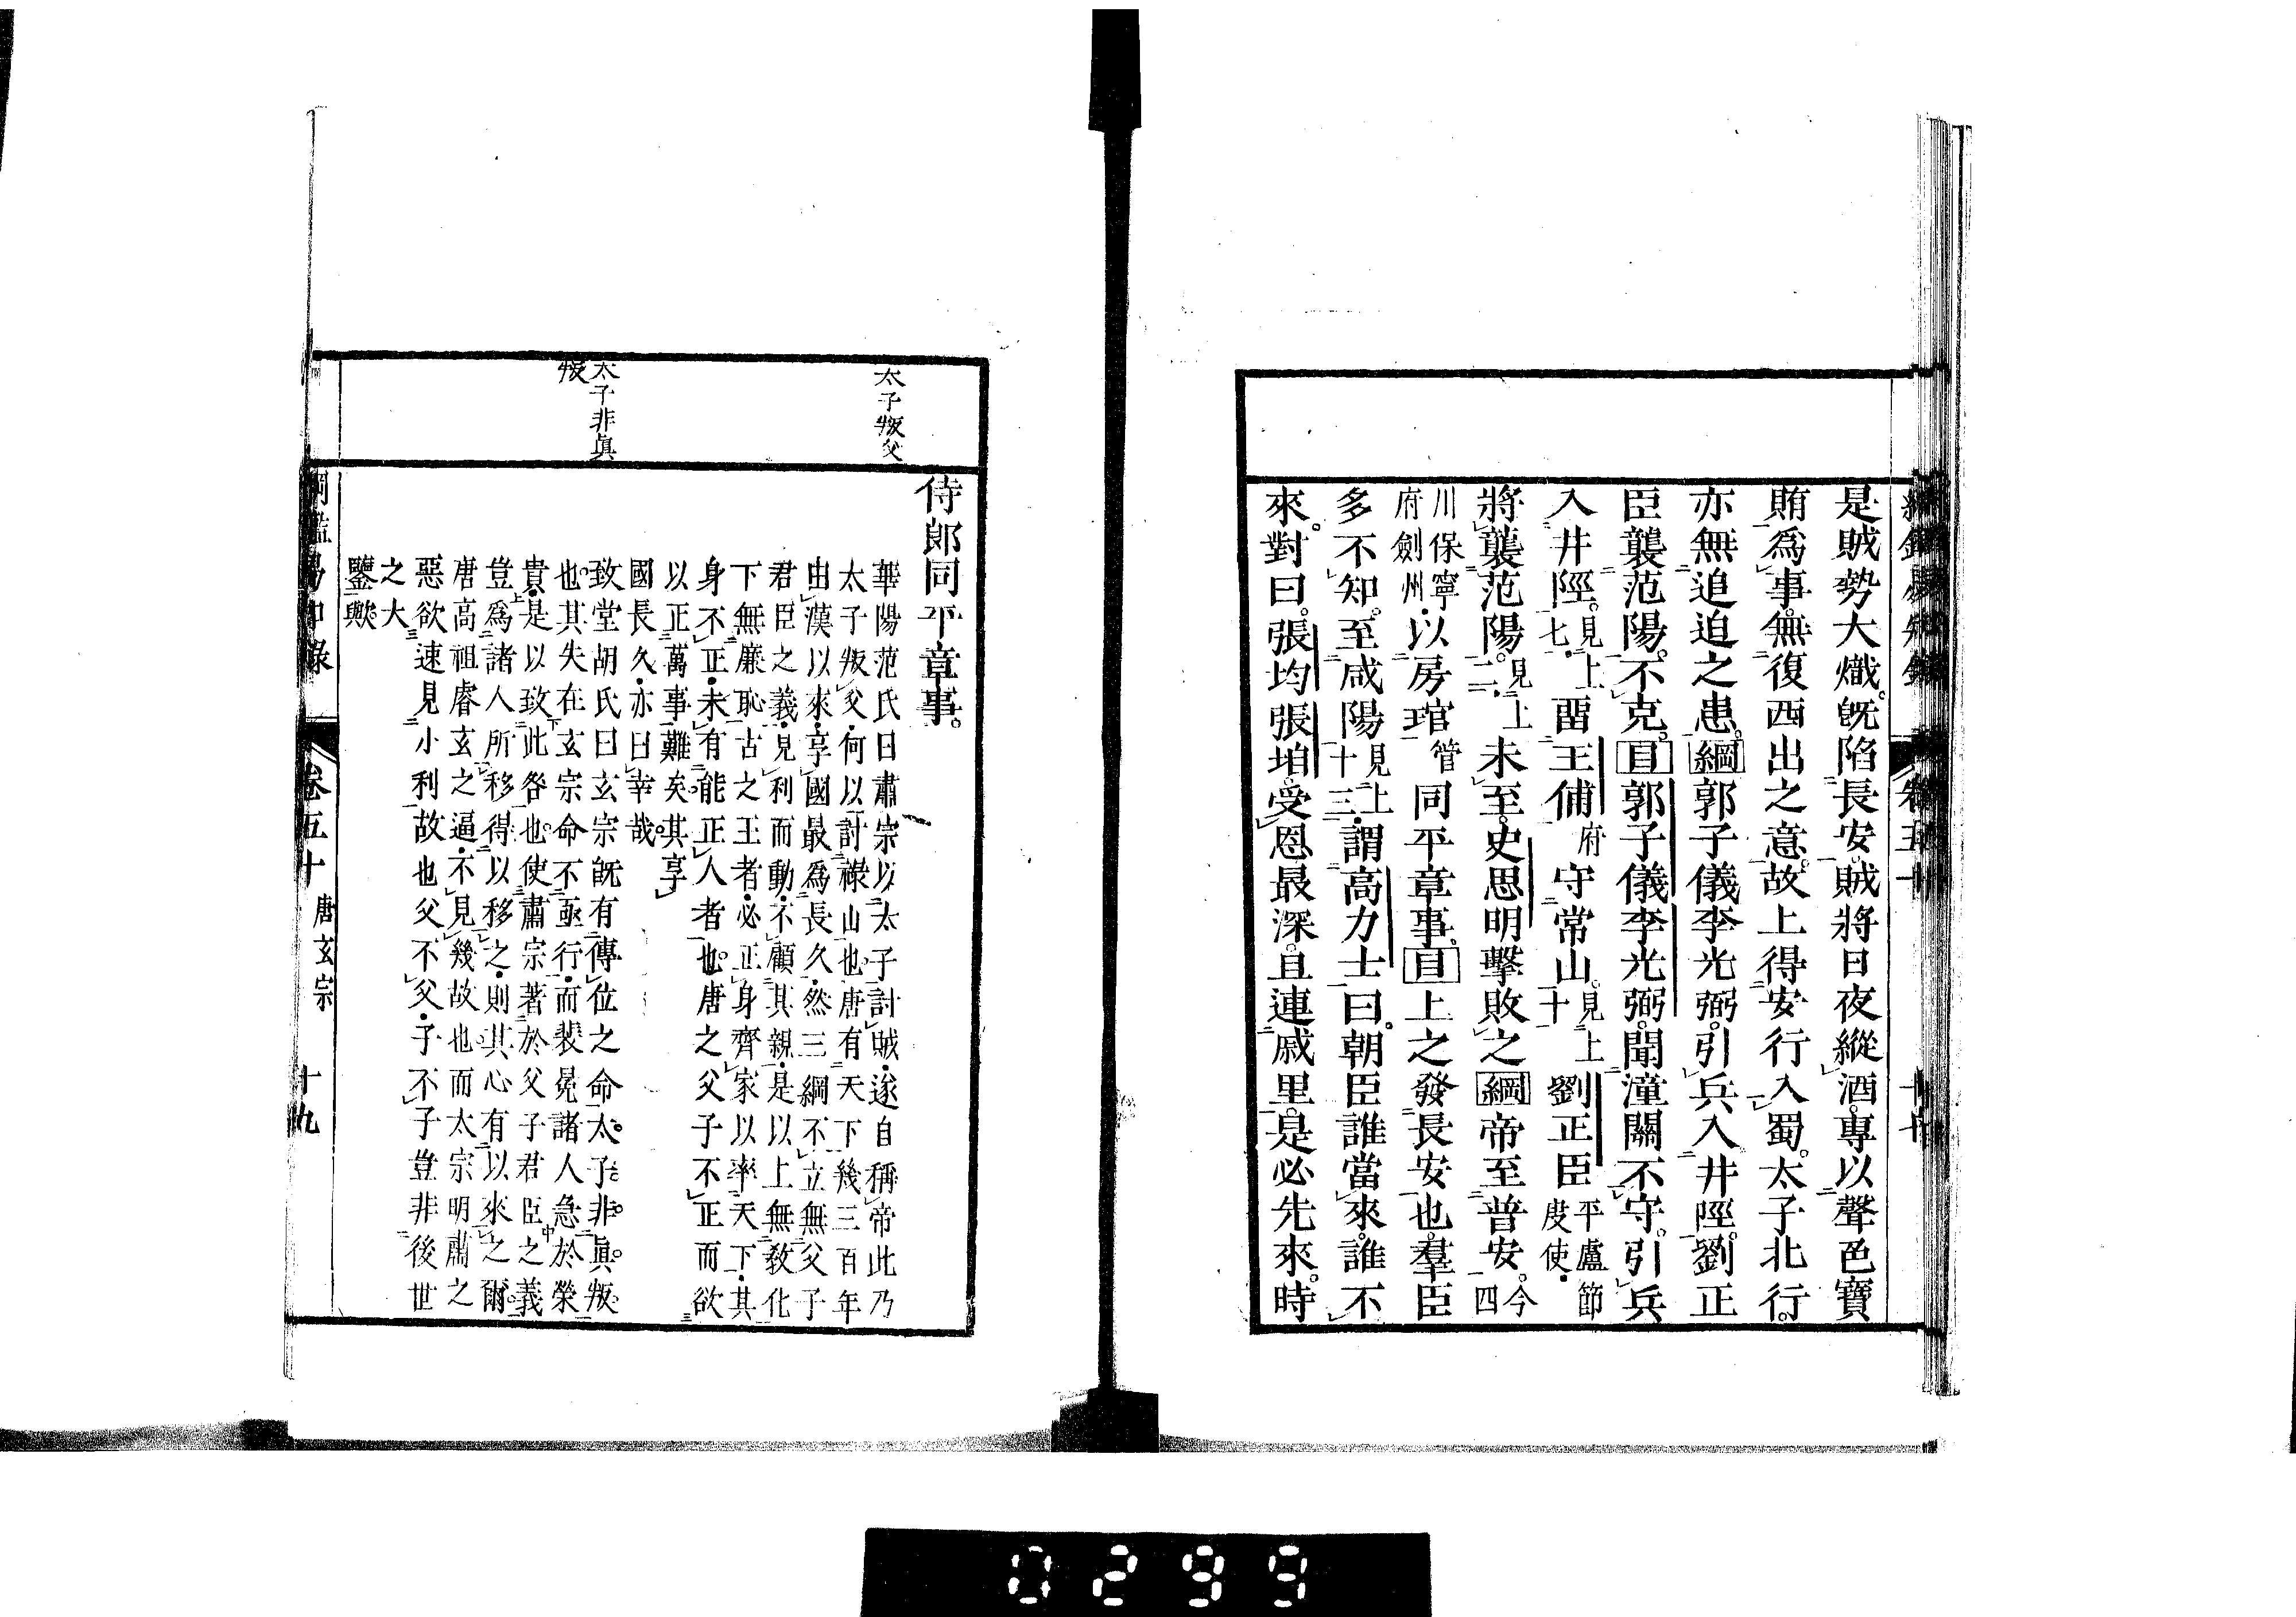 是賊勢大熾。旣陷長安。賊將日夜縱酒。專以聲色寶
賄爲事。無復西出之意。故上得安行入蜀。太子北行。
亦無追迫之患。綱郭子儀李光弼。引兵入井陘。劉正
臣襲范陽。不克。目郭子儀李光弼。聞潼關不守。引兵
入井陘。見上七・畱王俌府守常山。見上十劉正臣平盧節度使・
將襲范陽。見上二・未至。史思明擊敗之綱帝至普安。今四
川保寧府劍州・以房琯管同平章事。目上之發長安也。羣臣
多不知。至咸陽見上十三・謂高力士曰。朝臣誰當來。誰不
來。對曰。張均張垍。受恩最深。且連戚里。是必先來。時
太子叛父
太子非眞
叛
侍郎同平章事。
華陽范氏曰肅宗以太子討賊・遂自稱帝此乃
太子叛父・何以討祿山也。唐有天下幾三百年
由漢以來・享國最爲長久・然三綱不立無父子
君臣之義・見利而動・不顧其親・是以上無敎化
下無廉恥古之王者・必正身齊家以率天下・其
身不正・未有能正人者也。唐之父子不正而欲
以正萬事難矣。其享
國長久・亦曰幸哉。
致堂胡氏曰玄宗旣有傳位之命太子非眞叛
也。其失在玄宗命不亟行・而裴冕諸人急於榮
貴・是以致此咎也。使肅宗著於父子君臣之義
豈爲諸人所移得以移之・則其心有以來之爾。
唐高祖睿玄之逼・不見幾故也。而太宗明肅之
惡欲速見小利故也父不父・子不子豈非後世
之大
鑒歟。
綱鑑易知錄 卷五十 唐玄宗 十九
0299